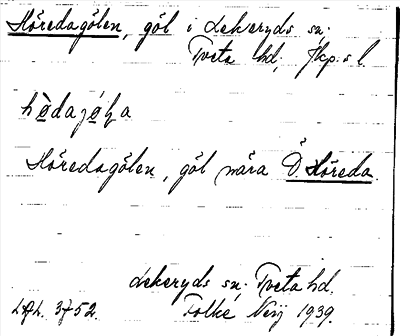 Höredagölen, göl i Lekeryds sn.
Tveta hd, Jkp.s l.
hødagøļa
Höredagölen, göl nära Ö. Höreda.
Lekeryds sn, Tveta hd.
3752. Folke Nerj 1939.